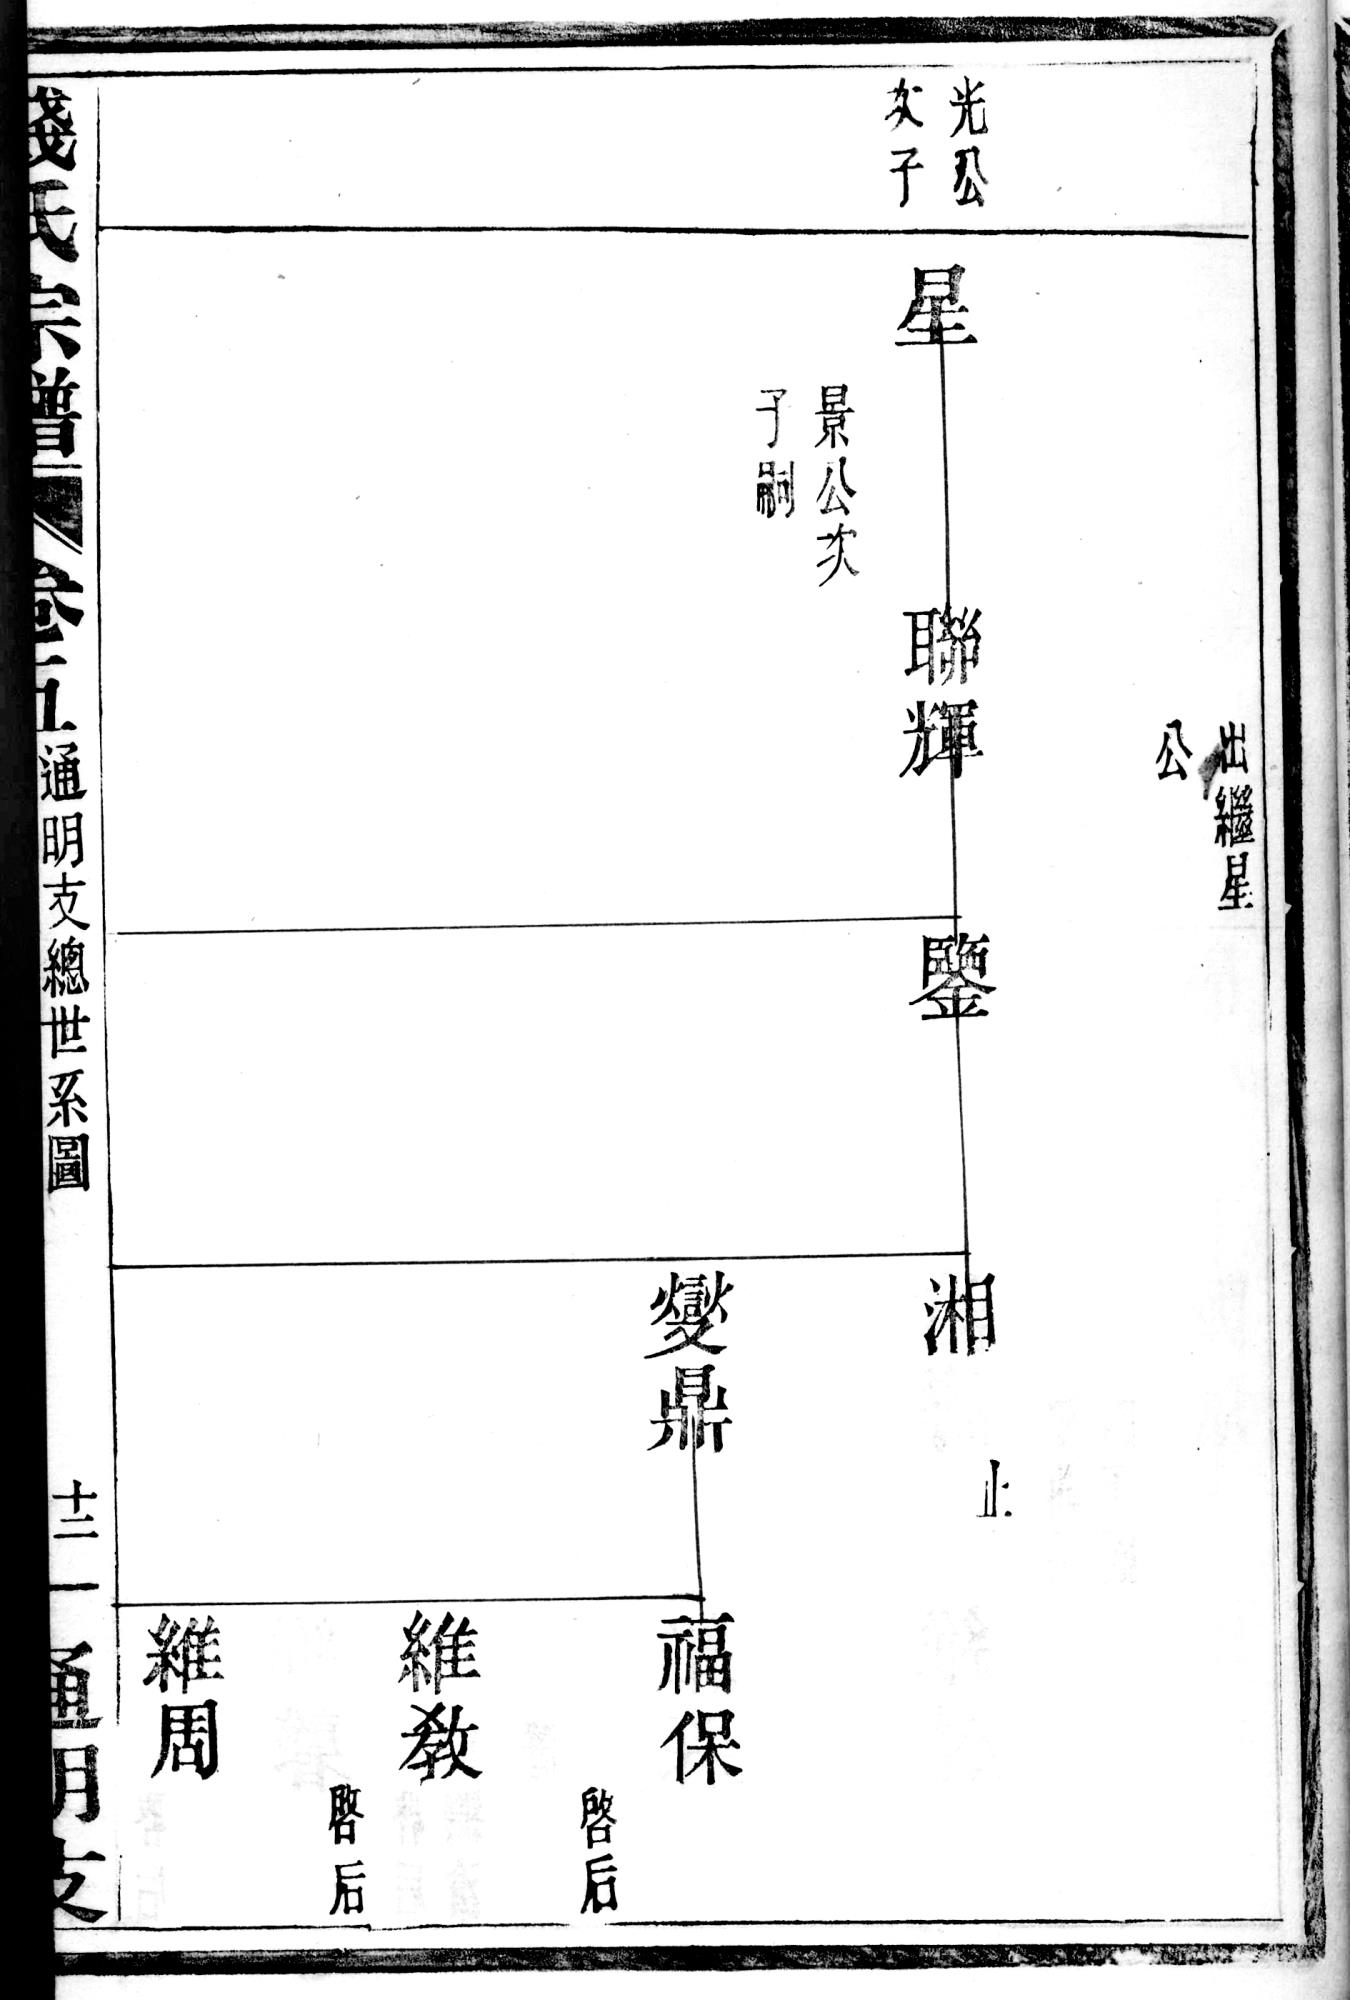 出繼星
公
光公
次子
星
景公次
子嗣
聯輝
鑒
湘
止
燮鼎
福保
啓后
維教
啓后
維周
錢氏宗譜
卷五
通明支總世系圖
十二
一
通明支